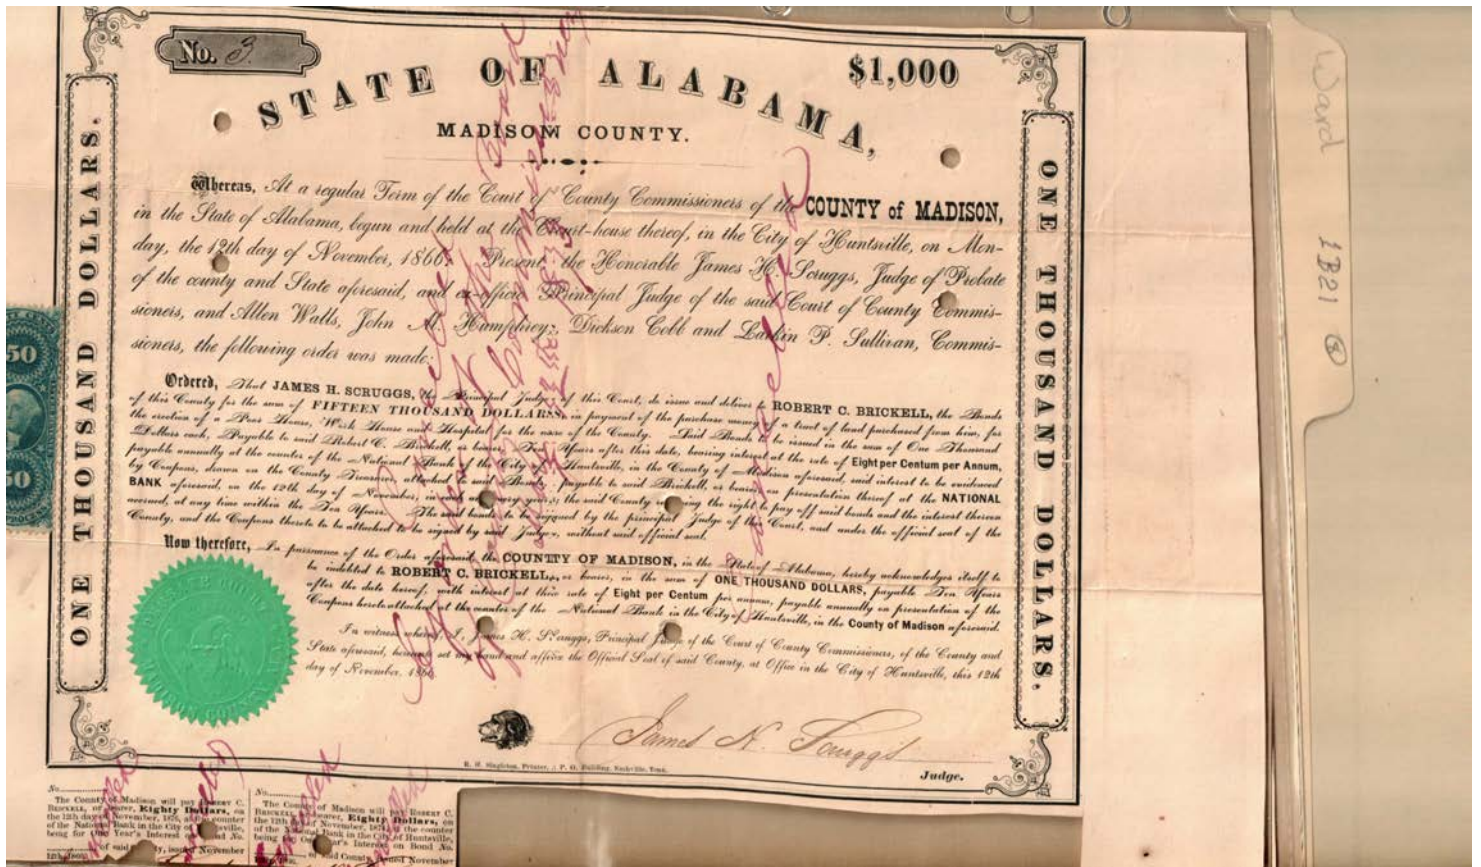 No. 3.
$1,000
STATE OF ALABAMA,
MADISON COUNTY.
ONE THOUSAND DOLLARS.
ONE THOUSAND DOLLARS.
Whereas, At a regular Term of the Court of County Commissioners of the COUNTY of MADISON,
in the State of Alabama, begun and held at the Court-house thereof, in the City of Huntsville, on Mon-
day, the 12th day of November, 1866. Present, the Honorable James H. Scruggs, Judge of Probate
of the county and State aforesaid, and ex-officio Principal Judge of the said Court of County Commis-
sioners, and Allen Walls, John M. Humphrey, Dickson Cobb and Larkin P. Sullivan, Commis-
sioners, the following order was made:
Ordered, That JAMES H. SCRUGGS, the Principal Judge of this Court, do issue and deliver to ROBERT C. BRICKELL, the Bonds
of this County for the sum of FIFTEEN THOUSAND DOLLARS, in payment of the purchase money of a tract of land purchased from him, for
the erection of a Poor House, Work House and Hospital for the use of the County. Said Bonds to be issued in the sum of One Thousand
Dollars each, Payable to said Robert C. Brickell, or bearer, Ten Years after this date, bearing interest at the rate of Eight per Centum per Annum,
payable annually at the counter of the National Bank of the City of Huntsville, in the County of Madison aforesaid, said interest to be evidenced
by Coupons, drawn on the County Treasurer, attached to said Bonds, payable to said Brickell, or bearer, on presentation thereof at the NATIONAL
BANK aforesaid, on the 12th day of November, in each year; the said County the right to pay off said bonds and the interest thereon
accrued, at any time within the Ten Years. The said bonds to be signed by the principal Judge of this Court, and under the official seal of the
County, and the Coupons thereto to be attached to be signed by said Judge, without said official seal.
Now therefore, In pursuance of the Order aforesaid, the COUNTY OF MADISON, in the State of Alabama, hereby acknowledges itself to
be indebted to ROBERT C. BRICKELL, or bearer, in the sum of ONE THOUSAND DOLLARS, payable Ten Years
after the date hereof, with interest at the rate of Eight per Centum per annum, payable annually on presentation of the
Coupons hereto attached at the counter of the National Bank in the City of Huntsville, in the County of Madison aforesaid.
In witness whereof, I, James H. Scruggs, Principal Judge of the Court of County Commissioners, of the County and
State aforesaid, hereunto set my hand and affix the Official Seal of said County, at Office in the City of Huntsville, this 12th
day of November, 1866
James H. Scruggs
Judge.
R. H. Singleton, Printer, P. O. Building, Nashville, Tenn.
Cancelled
Cancelled
by order of the Board
No.
The County of Madison will pay ROBERT C.
BRICKELL, or bearer, Eighty Dollars, on
the 12th day of November, 1876, at the counter
of the National Bank in the City of Huntsville,
being for One Year's Interest on Bond No.
of said County, issued November
12th, 1866.
No.
The County of Madison will pay ROBERT C.
BRICKELL, or bearer, Eighty Dollars, on
the 12th day of November, at the counter
of the National Bank in the City of Huntsville,
being for One Year's Interest on Bond No.
of said County, issued November
Cancelled
Cancelled
Cancelled
Cancelled
50
50
Ward
1B21 8